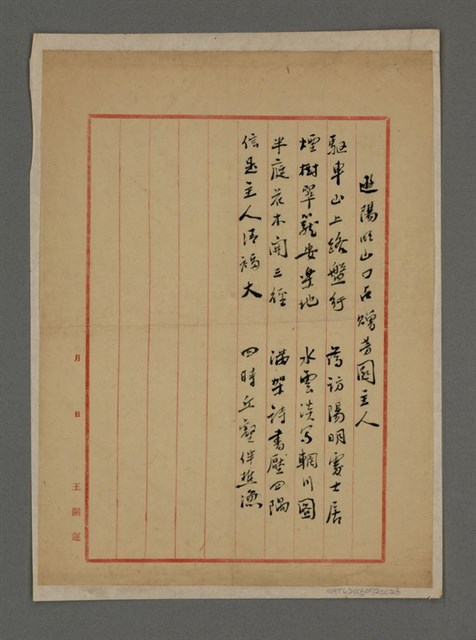 遊陽明山口占贈芳園主人
驅車山上路盤行 為訪陽明處士居
煙樹翠籠安樂地 水雲淡寫輞川圖
半庭花木開三徑 滿架詩書壓四隅
信是主人清福大 四時丘壑伴樵漁
月 日 王開運